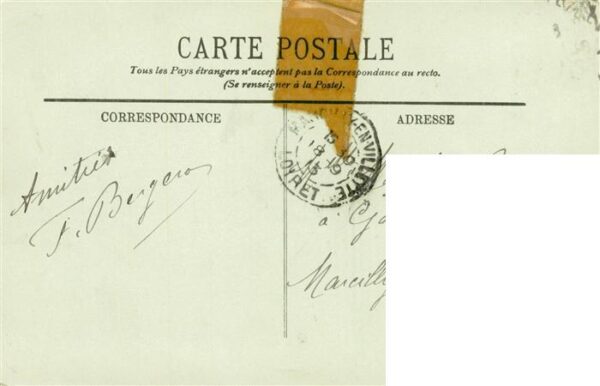 CARTE POSTALE
Tous les Pays étrangers n'acceptent pas la Correspondance au recto.
(Se renseigner à la Poste).
CORRESPONDANCE
ADRESSE
Amitiés
F. Bergero
à
Marcilly
EN-VILLETTE
LOIRET